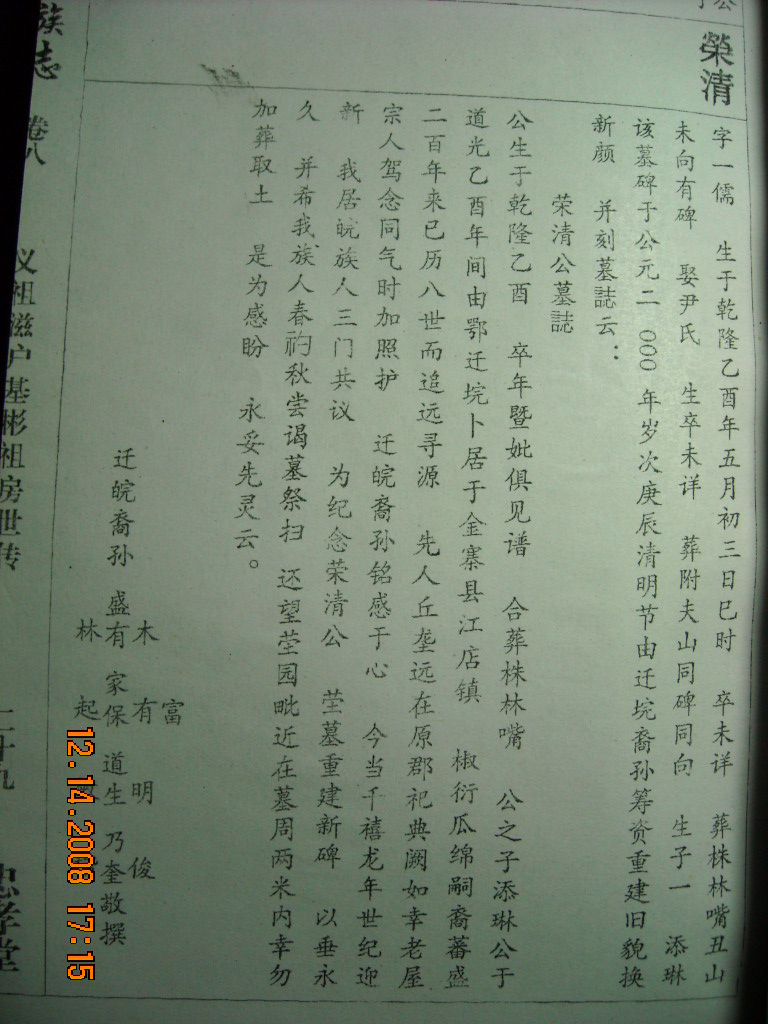 榮清
字一儒 生于乾隆乙酉年五月初三日巳时 卒未详 葬株林嘴丑山
未向有碑 娶尹氏 生卒未详 葬附夫山同碑同向 生子一 添琳
该墓碑于公元二000年岁次庚辰清明节由迁垸裔孙筹资重建旧貌换
新颜 并刻墓誌云：
荣清公墓誌
公生于乾隆乙酉 卒年暨妣俱见谱 合葬株林嘴 公之子添琳公于
道光乙酉年间由鄂迁垸卜居于金寨县江店镇 椒衍瓜绵嗣裔蕃盛
二百年来已历八世而追远寻源 先人丘垄远在原郡祀典阙如幸老屋
宗人驾念同气时加照护 迁皖裔孙铭感于心 今当千禧龙年世纪迎
新 我居皖族人三门共议 为纪念荣清公 茔墓重建新碑 以垂永
久 并希我族人春礿秋尝谒墓祭扫 还望茔园毗近在墓周两米内幸勿
加葬取土 是为感盼 永妥先灵云。
富
木 有明 俊
迁皖裔孙 盛有 家保 道生 乃奎敬撰
林 起
族志 卷八 义祖滋户基彬祖房世传 二十九 忠孝堂
12.14.2008 17:15